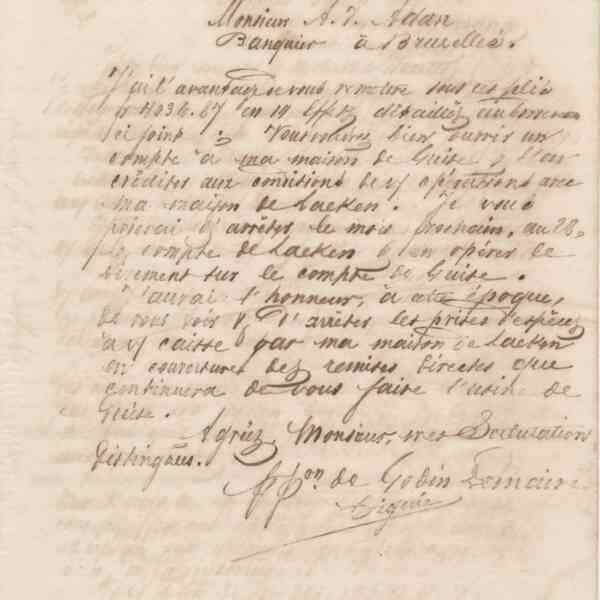 Monsieur A. J. Adan
Banquier à Bruxelles.
J'ai l'avantage de vous remettre sous ces plis
fr 4036.87 en 10 Effets détaillés au bordereau
ci joint. Vous voudrez bien ouvrir un
compte à ma maison de Guise & l'en
créditer aux conditions de vos opérations avec
ma maison de Laeken. Je vous
prierai d'arrêter le mois prochain, au 28
le compte de Laeken & d'en opérer de
virement sur le compte de Guise.
J'aurai l'honneur, à cette époque,
de vous voir & d'arrêter les prises d'espèces
à vs caisse par ma maison de Laeken
en couverture des remises directes que
continuera de vous faire l'usine de
Guise.
Agréez, Monsieur, mes Salutations
Distinguées.
pp on de Godin Lemaire